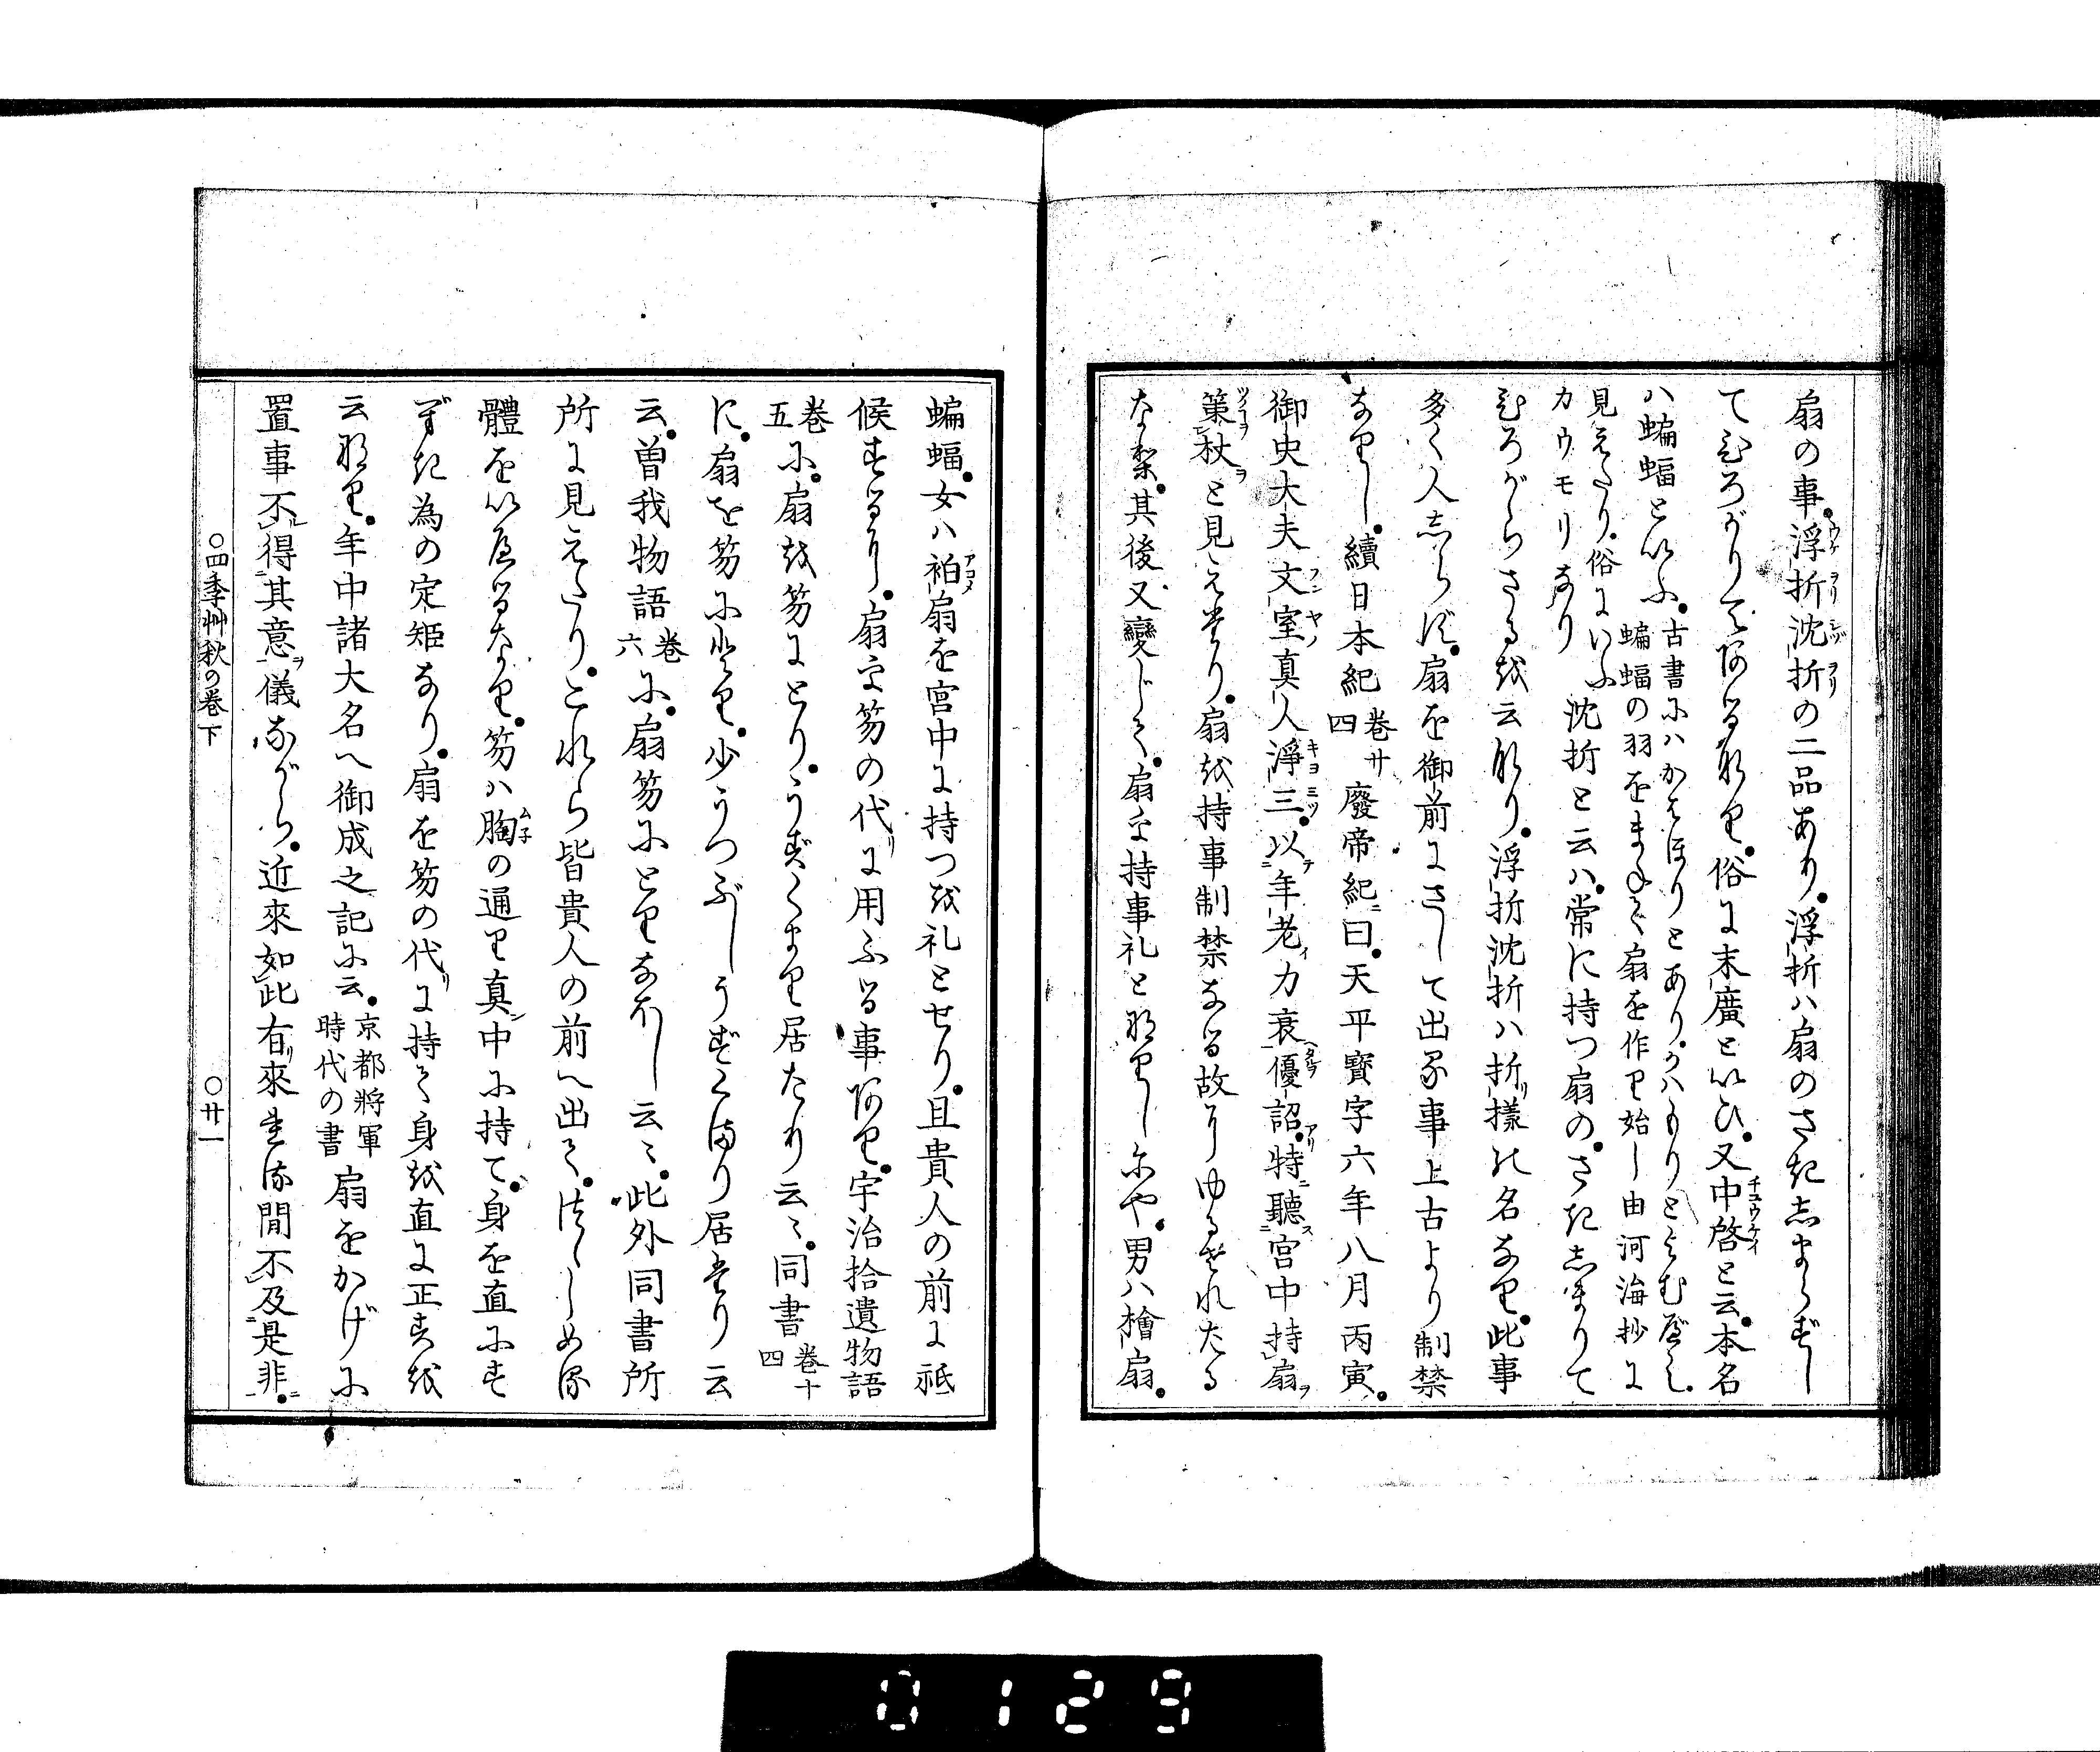 扇の事。浮折沈折の二品あり。浮折ハ扇のさきしまらずし
てひろがりてあるなり。俗に末廣といひ。又中啓と云。本名
ハ蝙蝠といふ。古書にハかはほりとあり。かハもりとよむべし。
蝙蝠の羽をまねて扇を作り始し由河海抄に
見えたり。俗にいふ
カウモリなり
沈折と云ハ。常に持つ扇の。さきしまりて
ひろがらさるを云なり。浮折沈折ハ折樣の名なり。此事
多く人しらず。扇を御前にさして出る事上古より制禁
なりし。續日本紀卷廿四廢帝紀ニ曰。天平寳字六年八月丙寅。
御史大夫文室真人淨三。以年老力衰優詔。特聽宮中持扇
策杖と見えたり。扇を持事制禁なる故にゆるされたる
なり。其後又變じて。扇を持事礼となりしにや。男ハ檜扇。
蝙蝠。女ハ袙扇を宮中に持つを礼とせり。且貴人の前に祗
候するに。扇を笏の代に用ふる事あり。宇治拾遺物語
卷五に。扇を笏にとり。うずくまり居たり云〻。同書卷十四
に。扇を笏にとり。少うつぶしうずくまり居たり云
云。曽我物語卷六に。扇笏にとりなほし云〻。此外同書所
所に見えたり。これら皆貴人の前へ出て。つゝしめる
體をいへるなり。笏ハ胸の通り真中に持て。身を直にす
べき為の定矩なり。扇を笏の代に持て身を直に正すを
云なり。年中諸大名へ御成之記に云。京都將軍時代の書扇をかげに
置事不得其意儀ながら。近來如此有來候間不及是非。
○四季艸秋の卷下 ○廿一
0129